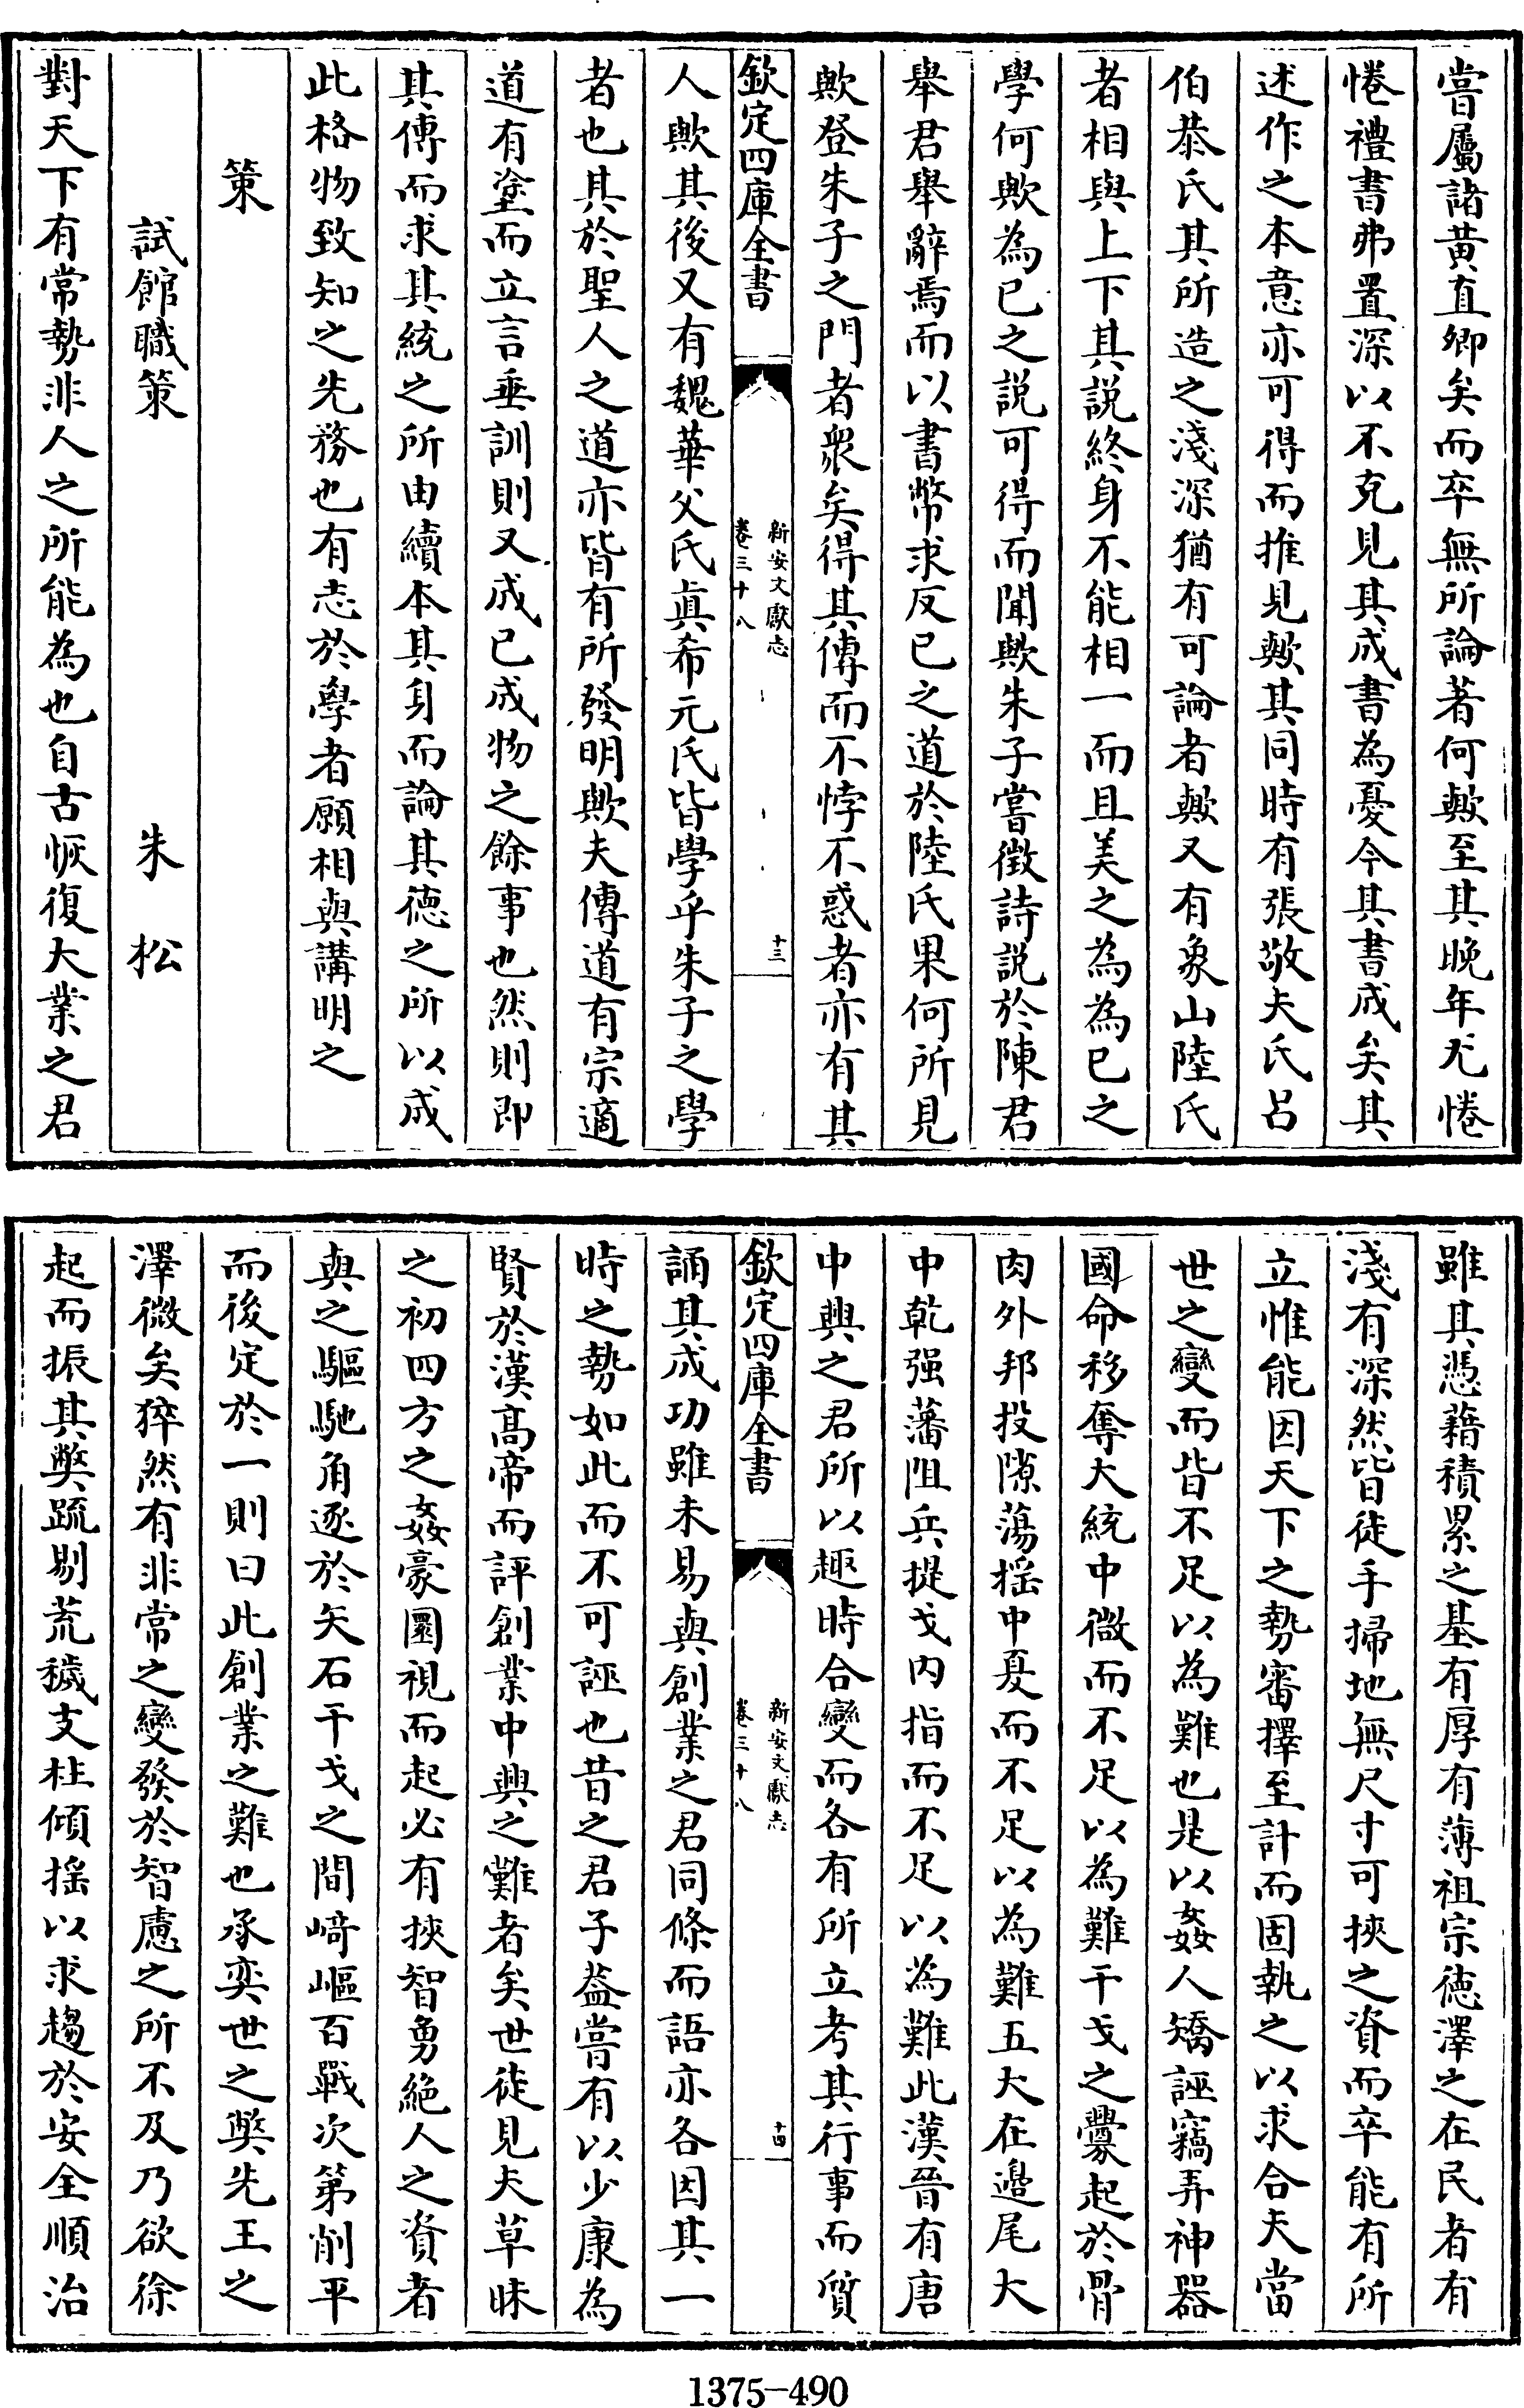 嘗屬諸黄直卿矣而卒無所論著何歟至其晚年尤惓
惓禮書弗置深以不克見其成書為憂今其書成矣其
述作之本意亦可得而推見歟其同時有張敬夫氏呂
伯恭氏其所造之淺深猶有可論者歟又有象山陸氏
者相與上下其説終身不能相一而且美之為為已之
學何歟為已之説可得而聞歟朱子嘗徴詩説於陳君
舉君舉辭焉而以書幣求反已之道於陸氏果何所見
歟登朱子之門者衆矣得其傳而不悖不惑者亦有其
欽定四庫全書
新安文獻志
卷三十八
十三
人歟其後又有魏華父氏眞希元氏皆學乎朱子之學
者也其於聖人之道亦皆有所發明歟夫傳道有宗適
道有塗而立言垂訓則又成已成物之餘事也然則即
其傳而求其統之所由續本其身而論其徳之所以成
此格物致知之先務也有志於學者願相與講明之
策
試館職策
朱松
對天下有常勢非人之所能為也自古恢復大業之君
雖其憑藉積累之基有厚有薄祖宗徳澤之在民者有
淺有深然皆徒手掃地無尺寸可挾之資而卒能有所
立惟能因天下之勢審擇至計而固執之以求合夫當
世之變而皆不足以為難也是以姦人矯誣竊弄神器
國命移奪大統中微而不足以為難干戈之釁起於骨
肉外邦投隙蕩揺中夏而不足以為難五大在邉尾大
中乾强藩阻兵提戈内指而不足以為難此漢晉有唐
中興之君所以趣時合變而各有所立考其行事而質
欽定四庫全書
新安文獻志
卷三十八
十四
誦其成功雖未易與創業之君同條而語亦各因其一
時之勢如此而不可誣也昔之君子葢嘗有以少康為
賢於漢髙帝而評創業中興之難者矣世徒見夫草昧
之初四方之姦豪圜視而起必有挾智勇絶人之資者
與之驅馳角逐於矢石干戈之間﨑嶇百戰次第削平
而後定於一則曰此創業之難也承奕世之弊先王之
澤微矣猝然有非常之變發於智慮之所不及乃欲徐
起而振其弊䟽剔荒穢支柱傾揺以求趨於安全順治
1375-490